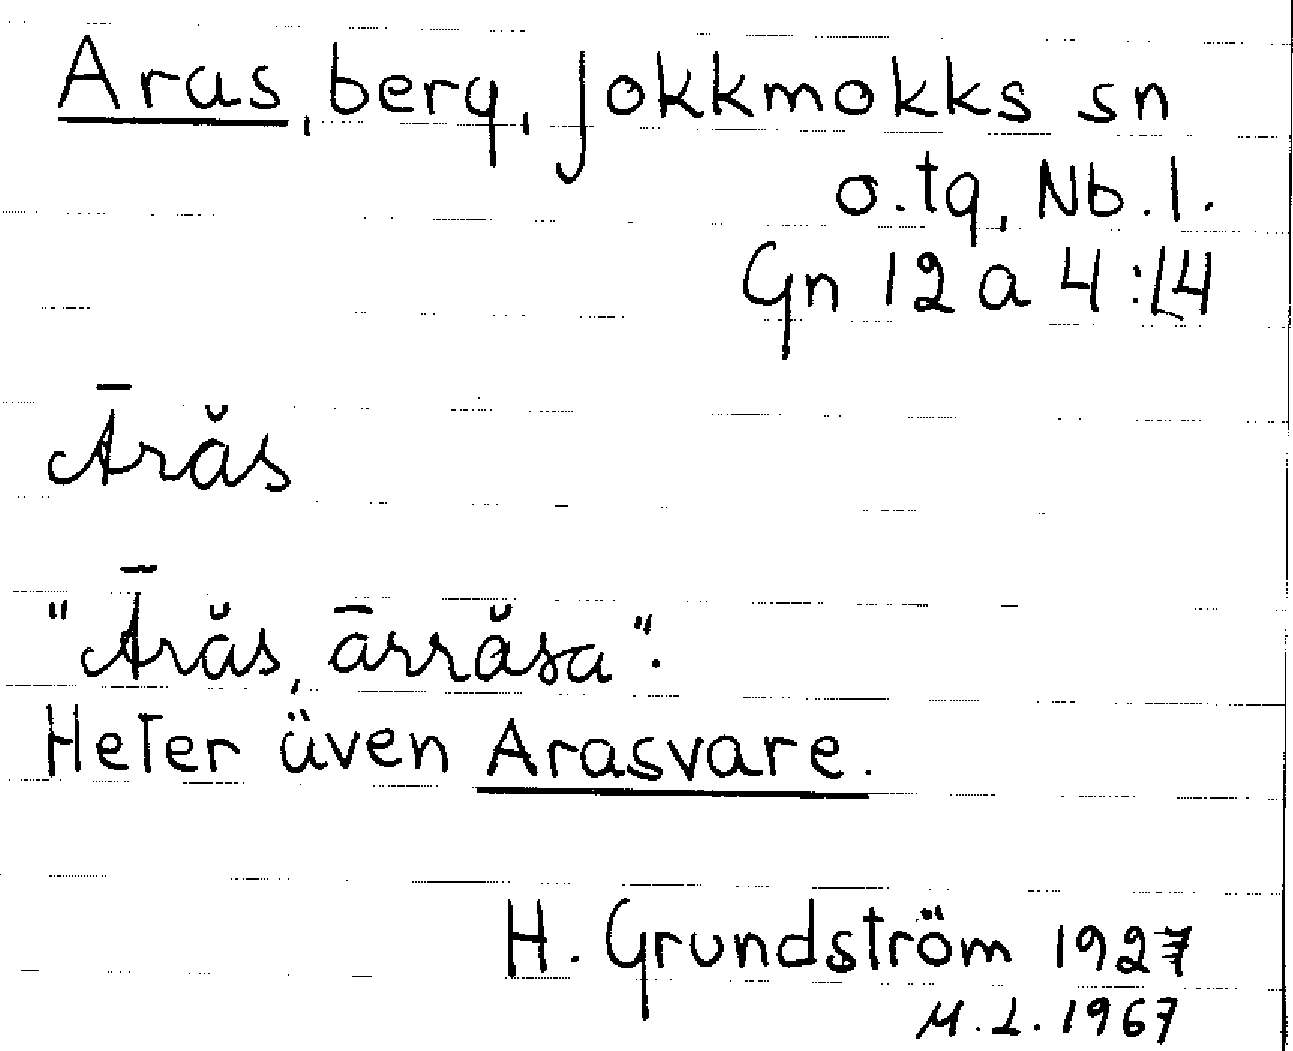 Aras, berg, Jokkmokks sn
o.tg, Nb.l.
Gn 12 a 4:14
Ārăs
"Ārăs, ārrăsa".
Heter även Arasvare.
H. Grundström 1927
M.L. 1967